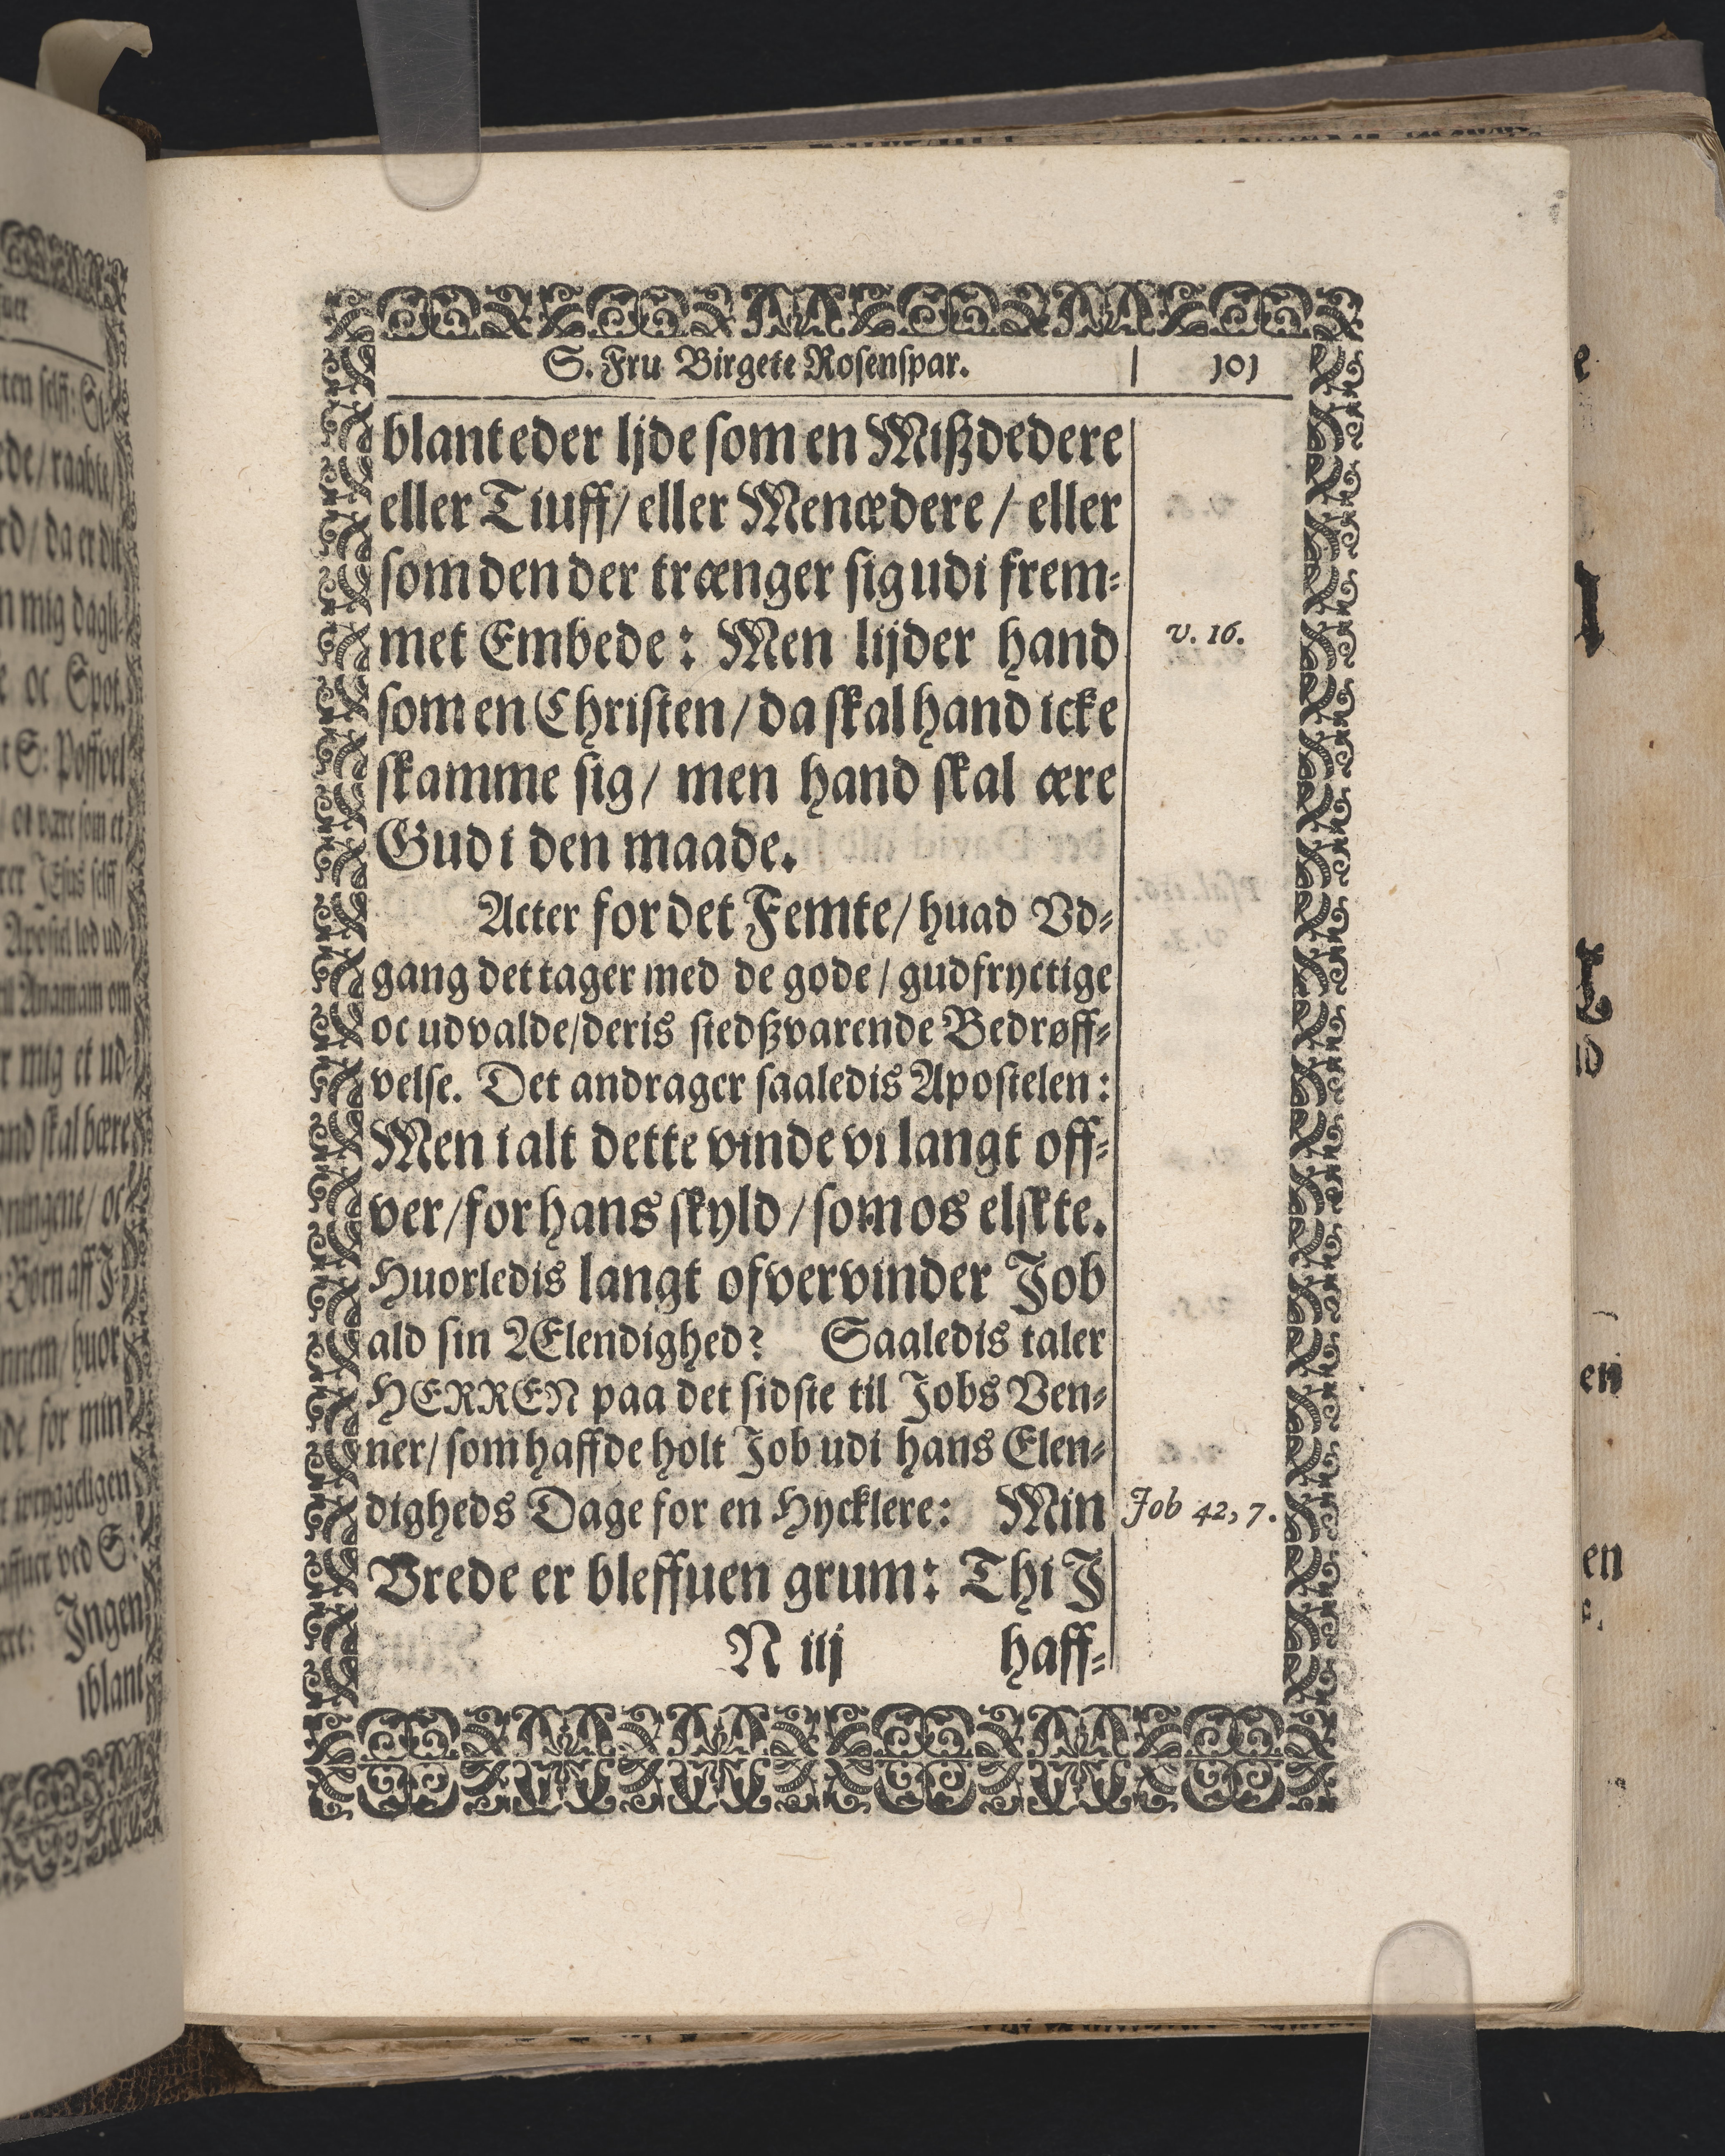 S. Fru Birgete Rosenspar. | 101
blant eder ljde som en Mißdedere
eller Tiuff/ eller Menædere / eller
som den der trænger sig udi frem-
met Embede: Men lijder hand
v. 16.
som en Christen/ da skal hand icke
skamme sig/ men hand skal ære
Gud i den maade.
Acter for det Femte/ huad Vd-
gang det tager med de gode / gudfryctige
oc udvalde/ deris stedßvarende Bedrøff-
velse. Det andrager saaledis Apostelen:
Men i alt dette vinde vi langt off-
ver/ for hans skyld / som os elskte.
Huorledis langt ofvervinder Job
ald sin Ælendighed? Saaledis taler
HERREN paa det sidste til Jobs Ven-
ner/ som haffde holt Job udi hans Elen-
digheds Dage for en Hycklere: Min
Job 42, 7.
Vrede er bleffuen grum: Thi J
N iij haff-